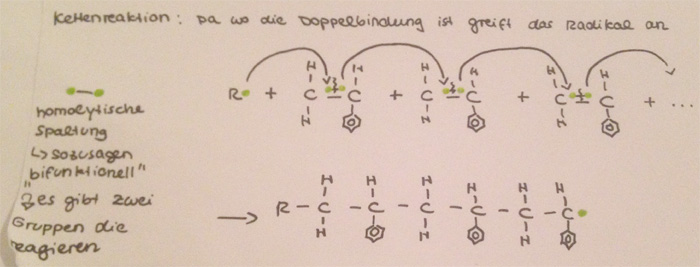 Kettenreaktion : Da wo die Doppelbindung ist greift das Radikal an
homolytische
Spaltung
↳ sozusagen
bifunktionell"
"
es gibt zwei
Gruppen die
reagieren
H H H H H H
R• + C = C + C = C + C = C + ...
H H H
→ R - C - C - C - C - C - C •
H H H H H H
H H H